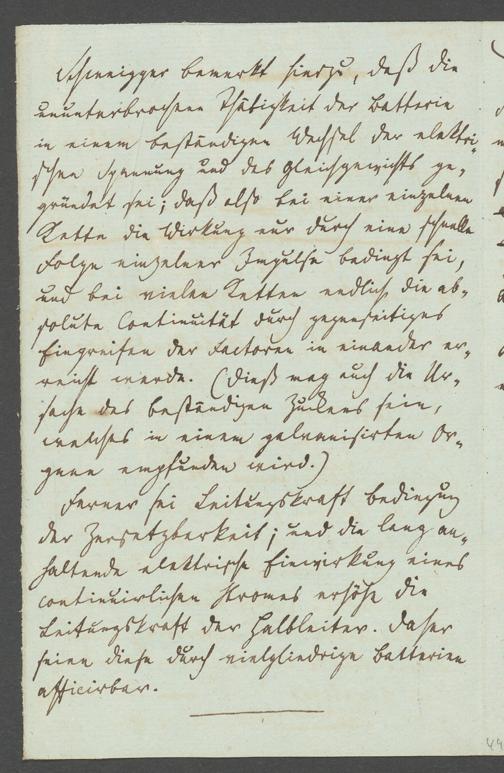 Schweigger bemerkt hierzu, daß die
ununterbrochene Thätigkeit der Batterie
in einem beständigen Wechsel der elektri-
schen Spannung und des Gleichgewichts ge-
gründet sei; daß also bei einer einzelnen
Kette die Wirkung nur durch eine schnelle
Folge einzelner Impulse bedingt sei,
und bei vielen Ketten endlich die ab-
solute Continuität durch gegenseitiges
Eingreifen der Factoren in einander er-
reicht werde. (Dieß mag auch die Ur-
sache des beständigen Zuckens sein,
welches in einem galvanisirten Or-
gane empfunden wird.)
Ferner sei Leitungskraft Bedingung
der Zersetzbarkeit; und die lang an-
haltende elektrische Einwirkung eines
continuirlichen Stromes erhöhe die
Leitungskraft der Halbleiter. Daher
seien diese durch vielgliedrige Batterien
afficirbar.